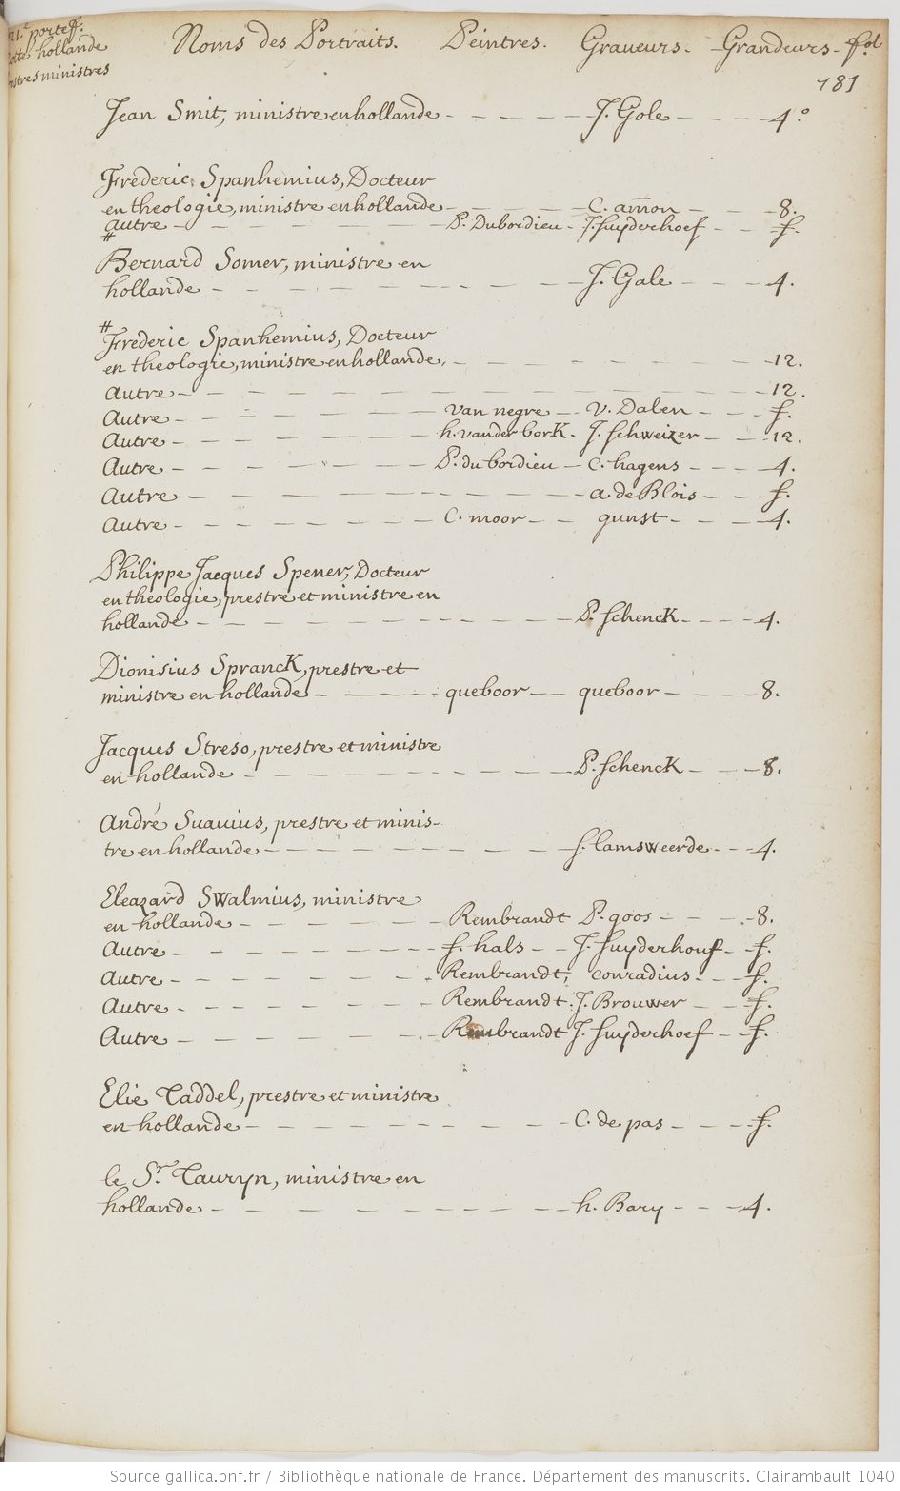 portef.
hollande
prestres ministres
Noms des Portraits. Peintres. Graveurs. Grandeurs. fol.
181
Jean Smit, ministre en hollande - - - - J. Gole - - - 4.º
Frederic Spanhemius, Docteur
en theologie, ministre en hollande - - - - C. amon - - - 8.
autre - - - - P. Dubordieu - J. suyderhoef - - f.
#
Bernard Somer, ministre en
hollande - - - - J. Gale - - - 4.
#
Frederic Spanhemius, Docteur
en theologie, ministre en hollande, - - - - 12.
autre - - - - 12.
Autre - - - - van negre - - v. Dalen - - - f.
Autre - - - - h. vander bork - J. schweizer - - - 12.
Autre - - - - P. du bordieu - C. hagens - - - 4.
Autre - - - - a. de Blois - - f.
Autre - - - - C. moor - - gunst - - - 4.
Philippe Jacques Spener, Docteur
en theologie, prestre et ministre en
hollande - - - - P. schenck - - - 4.
Dionisius Spranck, prestre et
ministre en hollande - - - - queboor - - queboor - - - 8.
Jacques Streso, prestre et ministre
en hollande - - - - P. schenck - - - 8.
André Suavius, prestre et minis-
tre en hollande - - - - s. lamsweerde - - - 4.
Eleazard Swalmius, ministre
en hollande - - - - Rembrandt P. goos - - - 8.
Autre - - - - f. hals - - J. suyderhouf - - f.
Autre - - - - Rembrandt, conradius - - - f.
Autre - - - - Rembrandt. J. Brouwer - - - f.
Autre - - - - Rembrandt J. suyderhoef - - f.
Elie Taddel, prestre et ministre
en hollande - - - - C. de pas - - - f.
le Sr. Tauryn, ministre en
hollande - - - - h. Bary - - - 4.
Source gallica.bnf.fr / Bibliothèque nationale de France. Département des manuscrits. Clairambault 1040